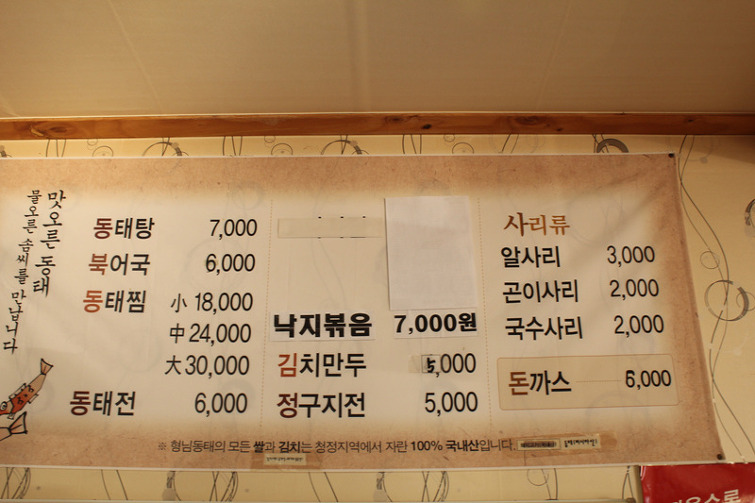 맛오른 동태
물오른 솜씨를 만납니다
동태탕 7,000
북어국 6,000
동태찜 小 18,000
中 24,000
大 30,000
동태전 6,000
낙지볶음 7,000원
김치만두 5,000
정구지전 5,000
사리류
알사리 3,000
곤이사리 2,000
국수사리 2,000
돈까스 6,000
※ 형님동태의 모든 쌀과 김치는 청정지역에서 자란 100% 국내산입니다.